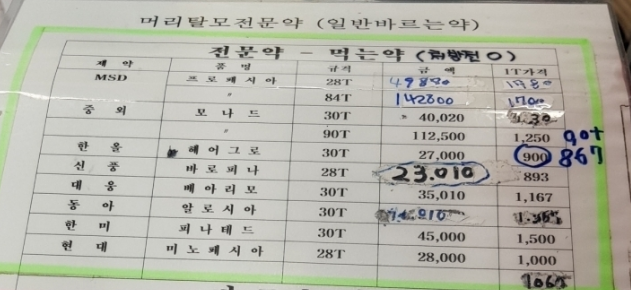 머리탈모전문약 (일반바르는약)
전문약 - 먹는약 (처방전 O)
제약 품명 규격 금액 1T가격
MSD 프로페시아 28T 49880 1780
〃 84T 142800 1700
중외 모나드 30T 40,020
〃 90T 112,500 1,250 90t
한올 헤어그로 30T 27,000 900 867
신풍 바로피나 28T 23.010 893
대웅 베아리모 30T 35,010 1,167
동아 알로시아 30T
한미 피나테드 30T 45,000 1,500
현대 미노페시아 28T 28,000 1,000
1067